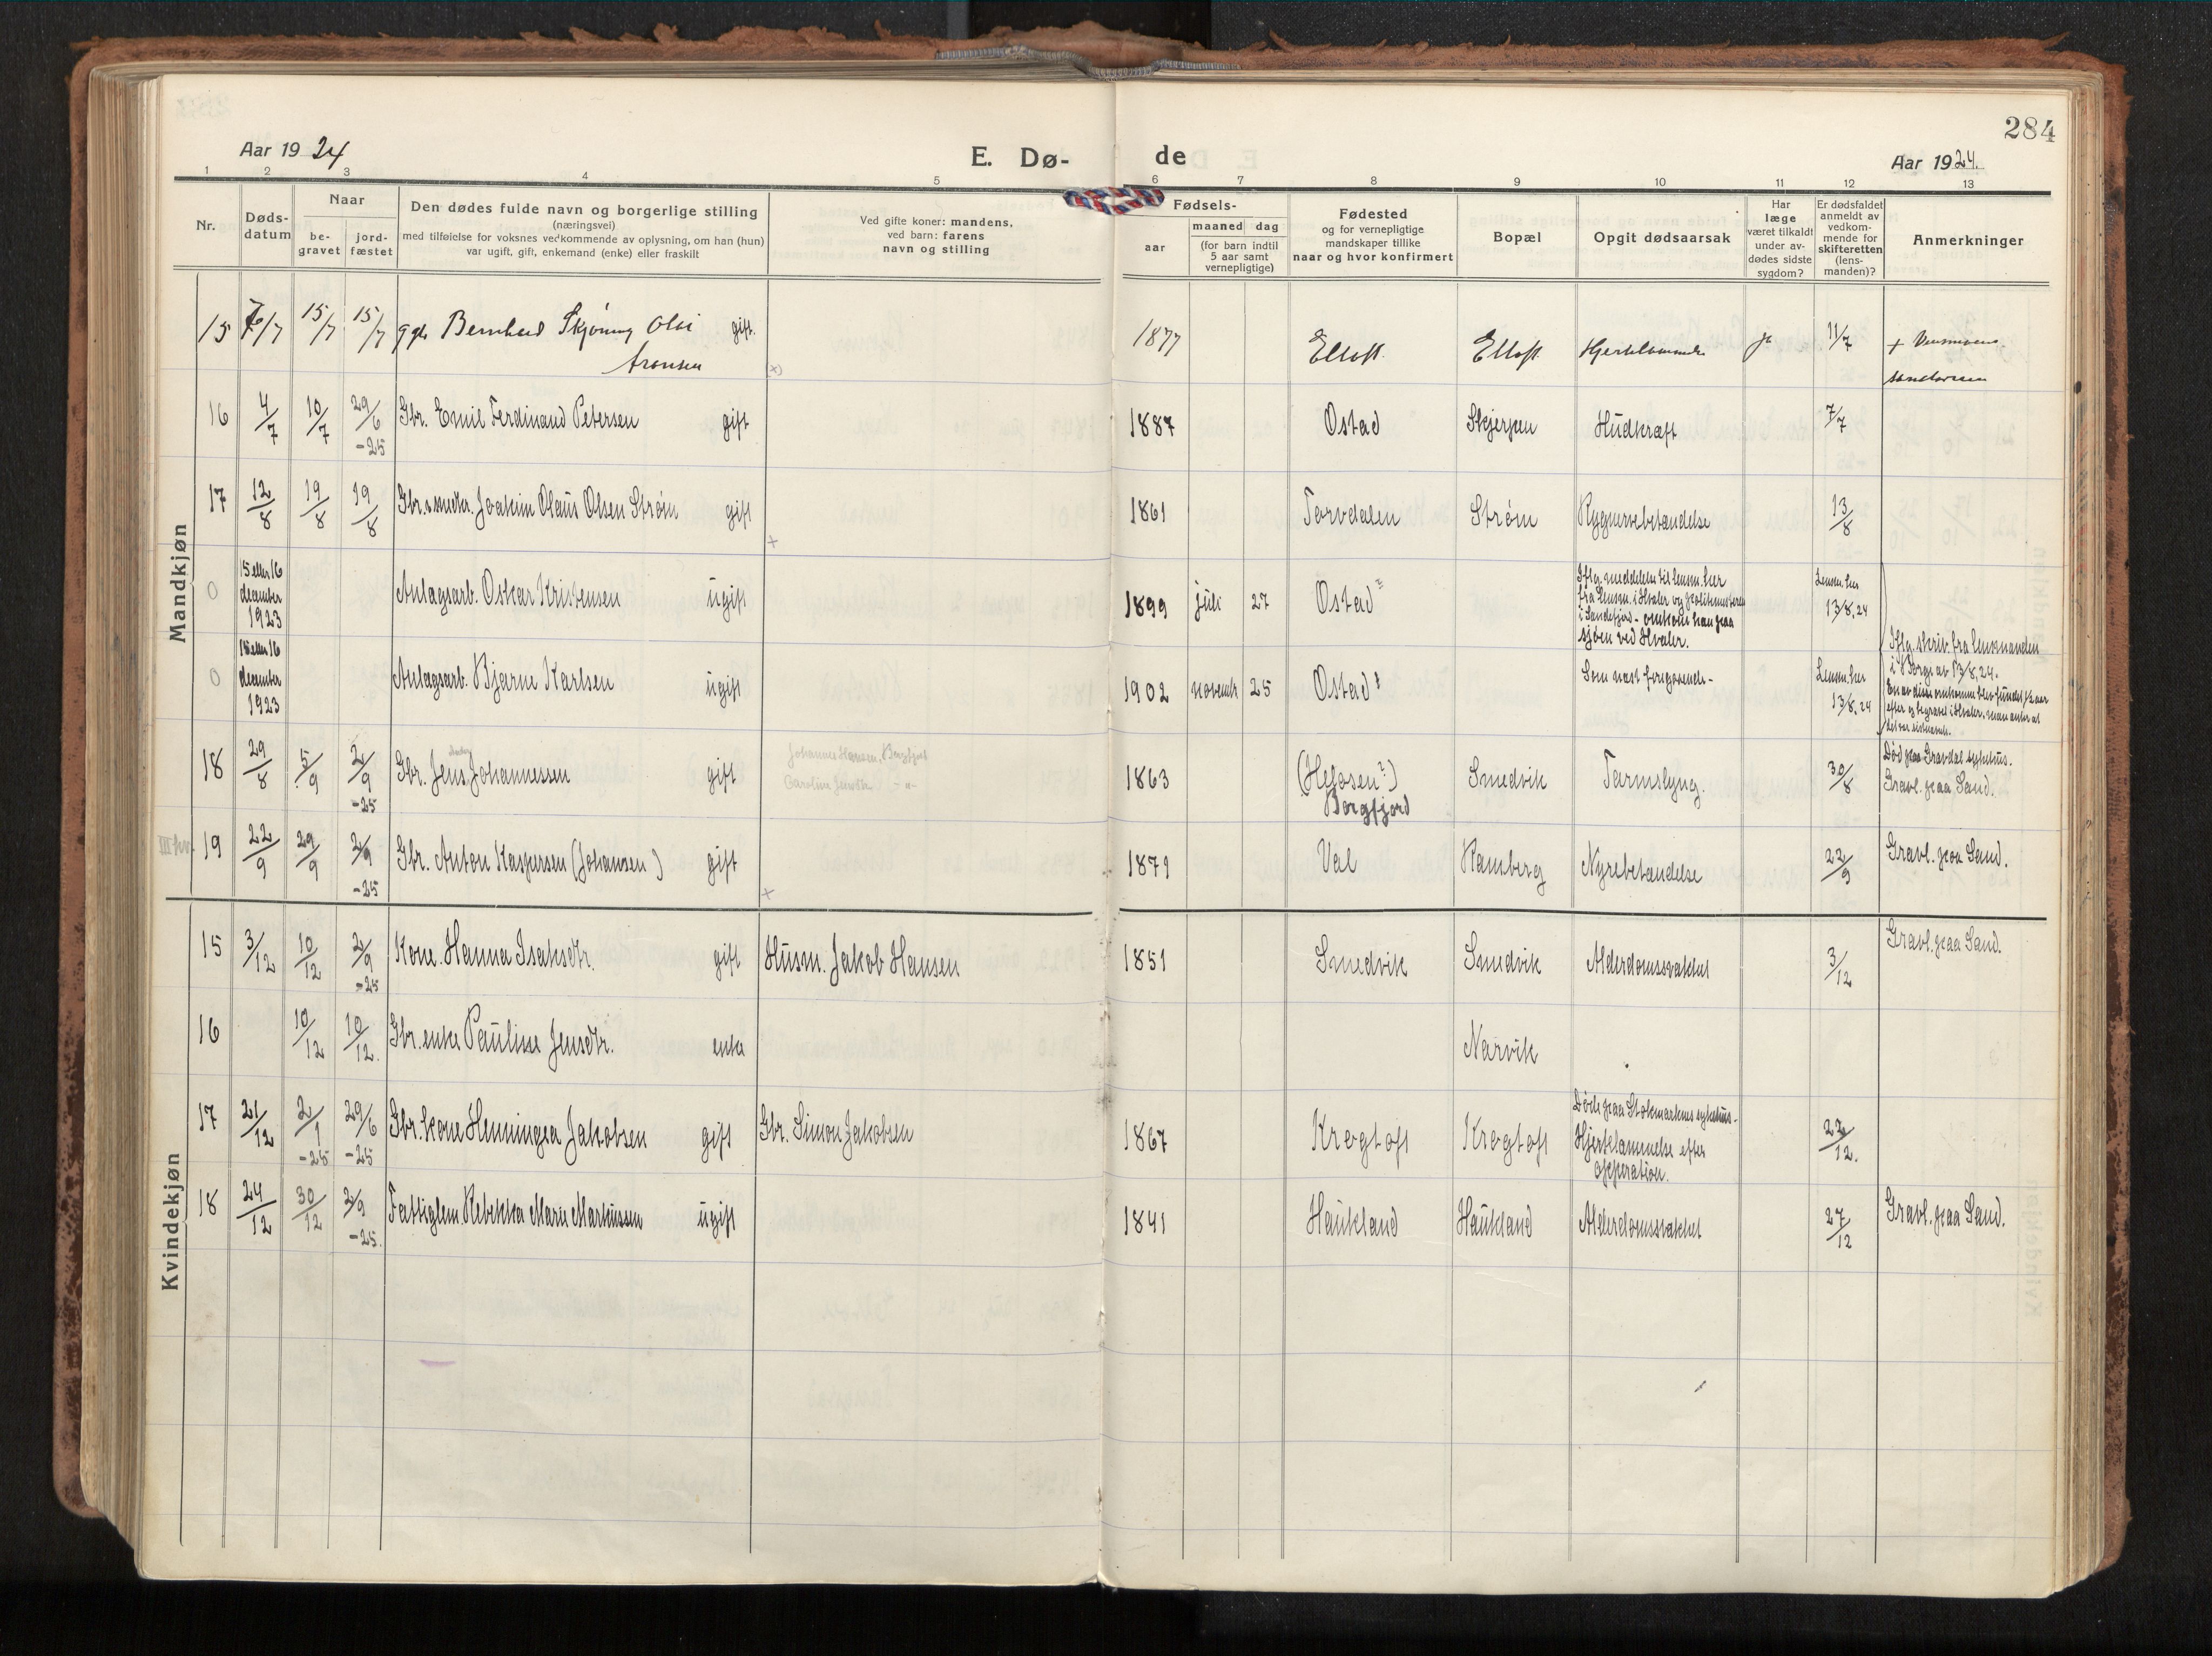 284
Aar 1924
E. Dø-
de
Aar 1924.
1 2 3 4 5 6 7 8 9 10 11 12 13
Nr.
Døds-
datum
Naar
be-
gravet
jord-
fæstet
Den dødes fulde navn og borgerlige stilling
(næringsvei)
med tilføielse for voksnes vedkommende av oplysning, om han (hun)
var ugift, gift, enkemand (enke) eller fraskilt
Ved gifte koner: mandens,
ved barn: farens
navn og stilling
Fødsels-
aar
maaned dag
(for barn indtil
5 aar samt
vernepligtige)
Fødested
og for vernepligtige
mandskaper tillike
naar og hvor konfirmert
Bopæl
Opgit dødsaarsak
Har
læge
været tilkaldt
under av-
dødes sidste
sygdom?
Er dødsfaldet
anmeldt av
vedkom-
mende for
skifteretten
(lens-
manden)?
Anmerkninger
Mandkjøn
15 7/7 15/7 15/7 Bernhard Skjønning Olai gift. 1877 Eltoft Eltoft Hjertelammelse ja 11/7
Aronsen (x)
16 4/7 10/7 29/6 Gbr. Emil Ferdinand Petersen gift 1887 Ostad Skjerpen Hudkræft 7/7
-25
17 12/8 19/8 19/8 Gbr. Joakim Olaus Olsen Strøm gift 1861 Torvdalen Strøm Rygnervebetændelse 13/8
x
0 15 eller 16 december 1923 Anlagsarb. Oskar Kristensen ugift 1899 juli 27 Ostad? Lensm. her 13/8.24
Iflg. meddelelse til lensm. her
fra lensm. i Hvaler og politimesteren
i Sandefjord - omkom han paa
sjøen ved Hvaler.
0 15 eller 16 december 1923 Anlagsarb. Bjarne Karlsen ugift 1902 novembr 25 Ostad? Som næst foregaaende - Lensm. her 13/8.24
Iflg. skriv. fra lensmanden
i Borge av 13/8.24.
18 29/8 5/9 2/9 Gbr. Jens Johannessen gift 1863 (Helosen?) Smedvik Tarmslyng. 30/8
-25 Borgfjord
Johannes Hansen, Borgfjord
Død paa Gravdal sykehus.
Gravl. paa Sand.
19 22/9 29/9 2/9 Gbr. Anton Kaspersen (Johansen) gift 1871 Val Ramberg Nyrebetændelse 22/9 Gravl. paa Sand.
-25 x
Kvindekjøn
15 3/12 10/12 2/9 Kone. Hanna Isaksdtr. gift Husm. Jakob Hansen 1851 Smedvik Smedvik Alderdomssvakhet 3/12 Gravl. paa Sand.
-25
16 10/12 10/12. Gbr. enke Pauline Jensdtr. enke Narvik
17 21/12 2/1 29/6 Gbr. kone Henningea Jakobsen gift Gbr. Simon Jakobsen 1867 Krogtoft Krogtoft 22/12.
-25 -25
Døde paa Stokmarknes sykehus -
Hjertelammelse efter
opperation.
18 24/12 30/12 2/9 Fattiglem Rebekka Marie Markussen ugift 1841 Haukland Haukland Alderdomssvakhet 27/12 Gravl. paa Sand.
-25.